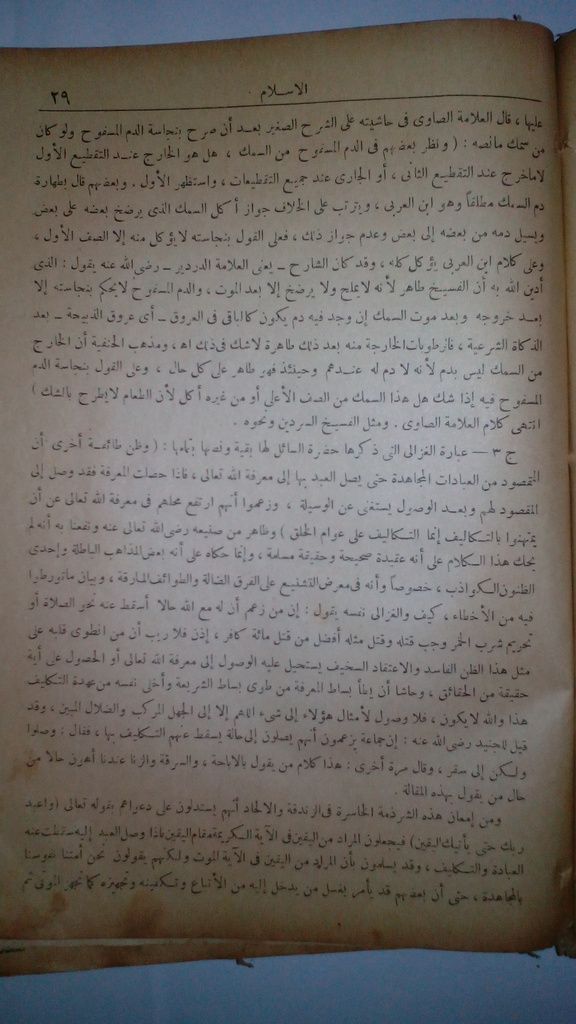 الاسلام
٢٩
عليها ، قال العلامة الصاوى فى حاشيته على الشرح الصغير بعد أن صرح بنجاسة الدم المسفوح ولو كان
من سمك مانصه : ( ونظر بعضهم فى الدم المسفوح من السمك ، هل هو الخارج عند التقطيع الأول
لاماخرج عند التقطيع الثانى ، أو الجارى عند جميع التقطيعات ، واستظهر الأول . وبعضهم قال بطهارة
دم السمك مطلقاً وهو ابن العربى ، ويترتب على الخلاف جواز أكل السمك الذى يرضخ بعضه على بعض
ويسيل دمه من بعضه إلى بعض وعدم جواز ذلك ، فعلى القول بنجاسته لايؤكل منه إلا الصف الأول ،
وعلى كلام ابن العربى يؤكل كله ، وقد كان الشارح ــ يعنى العلامة الدردير ــ رضى الله عنه يقول : الذى
أدين الله به أن الفسيخ طاهر لأنه لايملح ولا يرضخ إلا بعد الموت ، والدم المسفوح لايحكم بنجاسته إلا
بعد خروجه وبعد موت السمك إن وجد فيه دم يكون كالباقى فى العروق ــ أى عروق الذبيحة ــ بعد
الذكاة الشرعية ، فالرطوبات الخارجة منه بعد ذلك طاهرة لاشك فى ذلك اهـ ، ومذهب الحنفية أن الخارج
من السمك ليس بدم لأنه لا دم له عندهم وحينئذ فهو طاهر على كل حال ، وعلى القول بنجاسة الدم
المسفوح فيه إذا شك هل هذا السمك من الصف الأعلى أو من غيره أكل لأن الطعام لايطرح بالشك )
انتهى كلام العلامة الصاوى . ومثل الفسيخ السردين ونحوه .
ج ٣ ــ عبارة الغزالى التى ذكرها حضرة السائل لها بقية ونصها بتمامها : ( وظن طائفة أخرى أن
المقصود من العبادات المجاهدة حتى يصل العبد بها إلى معرفة الله تعالى ، فاذا حصلت المعرفة فقد وصل إلى
المقصود لهم وبعد الوصول يستغنى عن الوسيلة ، وزعموا أنهم ارتفع محلهم فى معرفة الله تعالى عن أن
يمتهنوا بالتكاليف إنما التكاليف على عوام الخلق ) وظاهر من صنيعه رضى الله تعالى عنه ونفعنا به أنه لم
يحك هذا الكلام على أنه عقيدة صحيحة وحقيقة مسلمة ، وإنما حكاه على أنه بعض المذاهب الباطلة وإحدى
الظنون الكواذب ، خصوصاً وأنه فى معرض التشنيع على الفرق الضالة والطوائف المارقة ، وبيان ماتورطوا
فيه من الأخطاء ، كيف والغزالى نفسه يقول : إن من زعم أن له مع الله حالا أسقط عنه نحو الصلاة أو
تحريم شرب الخمر وجب قتله وقتل مثله أفضل من قتل مائة كافر ، إذن فلا ريب أن من انطوى قلبه على
مثل هذا الظن الفاسد والاعتقاد السخيف يستحيل عليه الوصول إلى معرفة الله تعالى أو الحصول على أية
حقيقة من الحقائق ، وحاشا أن يطأ بساط المعرفة من طوى بساط الشريعة وأخلى نفسه من عهدة التكاليف
هذا والله لايكون ، فلا وصول لأمثال هؤلاء إلى شىء اللهم إلا إلى الجهل المركب والضلال المبين ، وقد
قيل للجنيد رضى الله عنه : إن جماعة يزعمون أنهم يصلون إلى حالة يسقط عنهم التكليف بها ، فقال : وصلوا
ولكن إلى سقر ، وقال مرة أخرى : هذا كلام من يقول بالاباحة ، والسرقة والزنا عندنا أهون حالا من
حال من يقول بهذه المقالة .
ومن إمعان هذه الشرذمة الخاسرة فى الزندقة والالحاد أنهم يستدلون على دعواهم بقوله تعالى (واعبد
ربك حتى يأتيك اليقين) فيجعلون المراد من اليقين فى الآية الكريمة مقام اليقين فاذا وصل العبد إليه سقطت عنه
العبادة والتكاليف ، وقد يسلمون بأن المراد من اليقين فى الآية الموت ولكنهم يقولون نحن أمتنا نفوسنا
بالمجاهدة ، حتى أن بعضهم قد يأمر بغسل من يدخل إليه من الأتباع وتكفينه وتجهيزه كما تجهز الموتى ثم